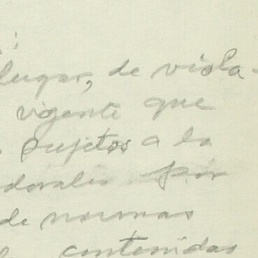 lugar, de viola-
vigente que
sujetos a la
dorales por
de normas
contenidas